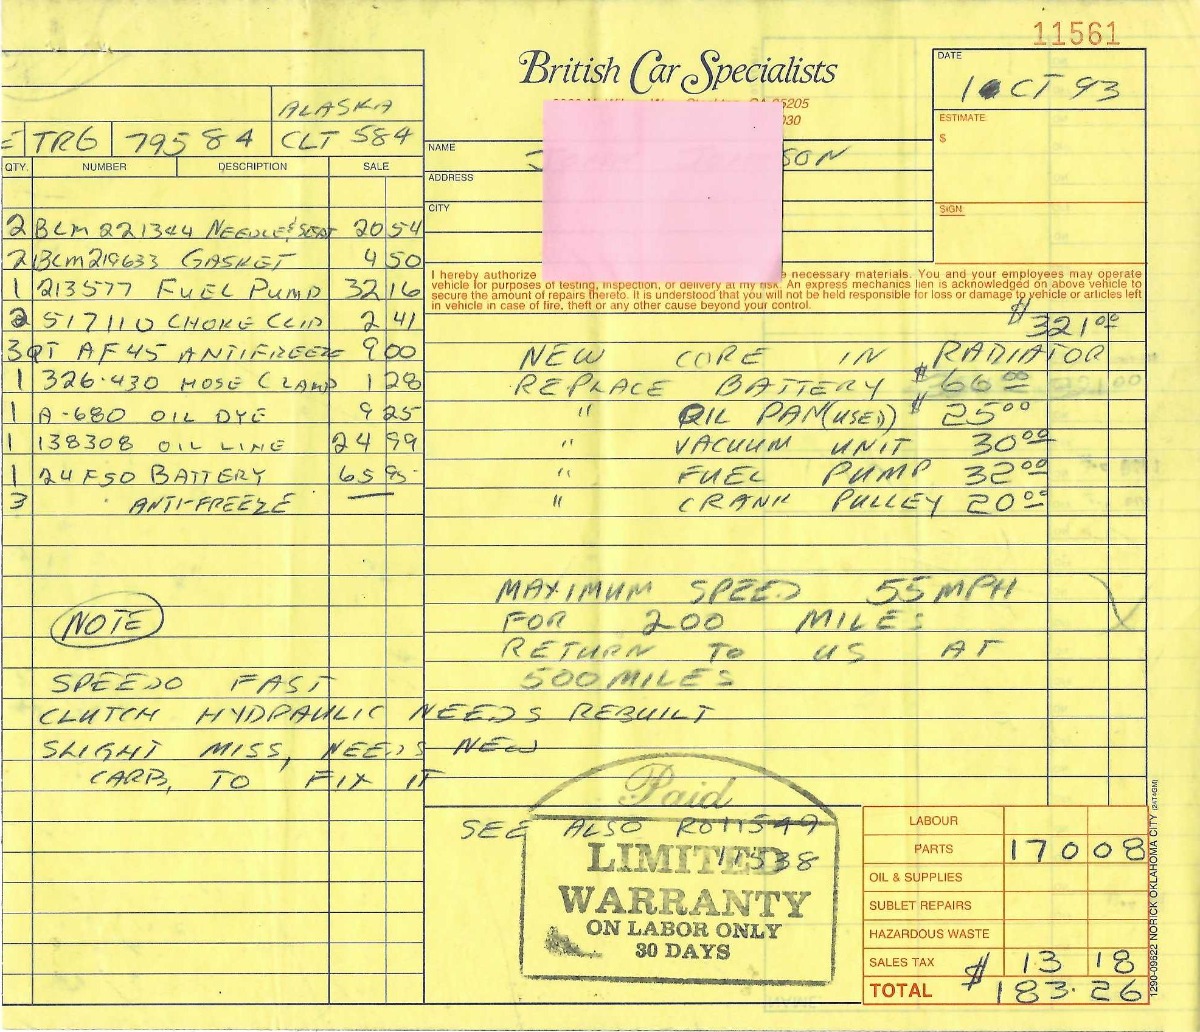 11561
British Car Specialists
95205
030
DATE
1 OCT 93
ESTIMATE:
$
SIGN:
ALASKA
TR6 79584 CLT 584
NAME
SON
ADDRESS
CITY
QTY. NUMBER DESCRIPTION SALE
2 BLM 221344 NEEDLE & SEAT 20 54
2 BLM 219633 GASKET 4 50
1 213577 FUEL PUMP 32 16
2 517110 CHOKE CLIP 2 41
3 QT AF45 ANTIFREEZE 9 00
1 326-430 HOSE CLAMP 1 28
1 A-680 OIL DYE 9 25
1 138308 OIL LINE 24 99
1 24F50 BATTERY 65 95
3 ANTI-FREEZE —
I hereby authorize necessary materials. You and your employees may operate
vehicle for purposes of testing, inspection, or delivery at my risk. An express mechanics lien is acknowledged on above vehicle to
secure the amount of repairs thereto. It is understood that you will not be held responsible for loss or damage to vehicle or articles left
in vehicle in case of fire, theft or any other cause beyond your control.
$ 321 00
NEW CORE IN RADIATOR
REPLACE BATTERY $ 66 00
" OIL PAN (USED) $ 25 00
" VACUUM UNIT 30 00
" FUEL PUMP 32 00
" CRANK PULLEY 20 00
MAXIMUM SPEED 55 MPH
FOR 200 MILES
RETURN TO US AT
500 MILES
NOTE
SPEEDO FAST
CLUTCH HYDRAULIC NEEDS REBUILT
SLIGHT MISS, NEEDS NEW
CARB, TO FIX IT
Paid
SEE ALSO RO 11549
11538
LIMITED
WARRANTY
ON LABOR ONLY
30 DAYS
LABOUR
PARTS 170 08
OIL & SUPPLIES
SUBLET REPAIRS
HAZARDOUS WASTE
SALES TAX $ 13 18
TOTAL 183.26
1290-09622 NORICK OKLAHOMA CITY